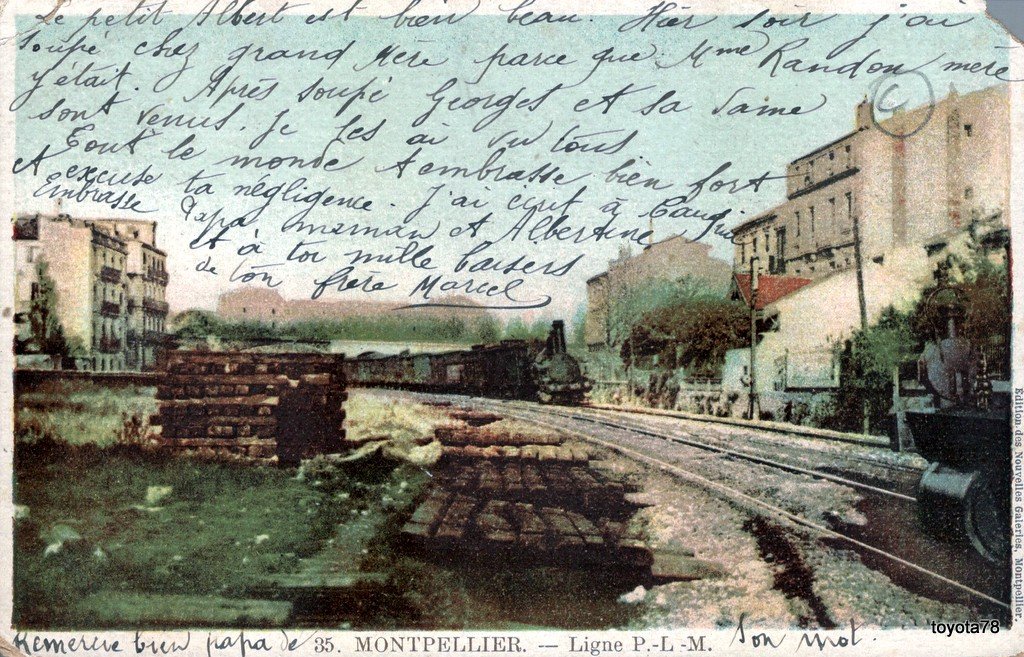 Le petit Albert est bien beau. Hier soir j'ai
soupé chez grand Mère parce que Mme Randon mère
y était. Après soupé Georges et sa Dame
sont venus. Je les ai vu tous
Tout le monde t'embrasse bien fort
et excuse ta négligence. J'ai écrit à
embrasse Papa maman et Albertine
et à toi mille baisers
de ton frère Marcel
©
Edition des Nouvelles Galeries, Montpellier.
Remercie bien papa de 35. MONTPELLIER. — Ligne P.-L-M. son mot.
toyota78